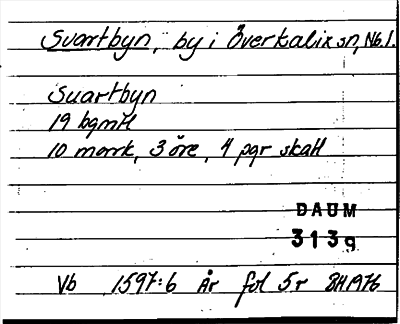 Svartbyn, by i Överkalix sn, Nb.l.
Suartbyn
19 bgmtl
10 mark, 3 öre, 4 pgr skatt
DAUM
3139
Vb 1597:6 År fol 5r BH 1976